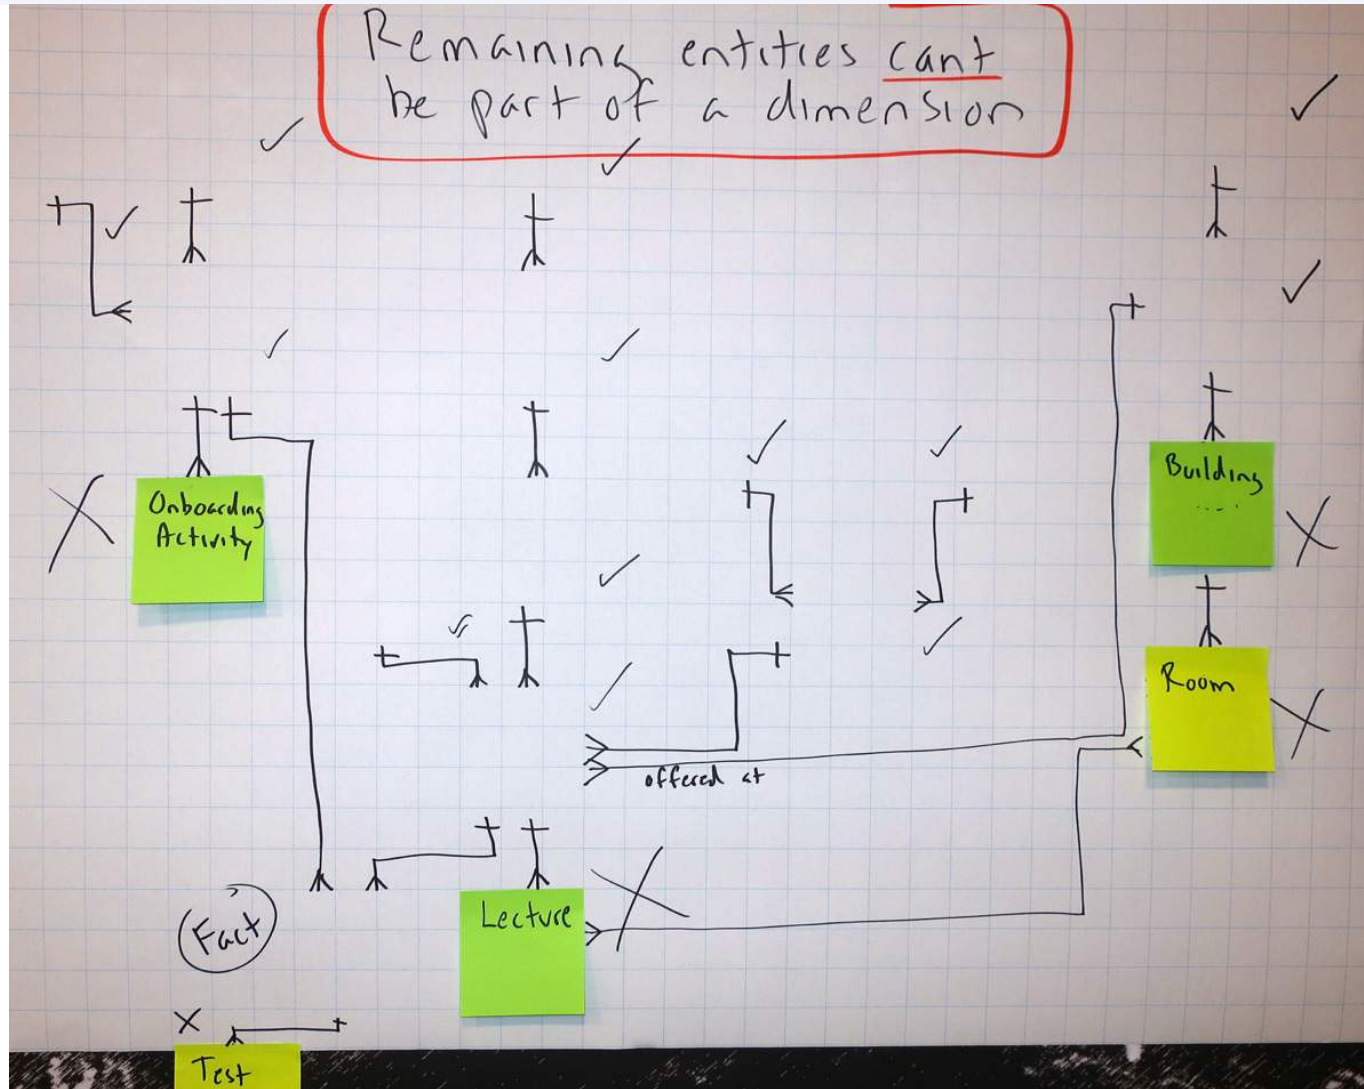 Remaining entities cant
be part of a dimension
Onboarding
Activity
Building
....
Room
offered at
Lecture
Fact
Test